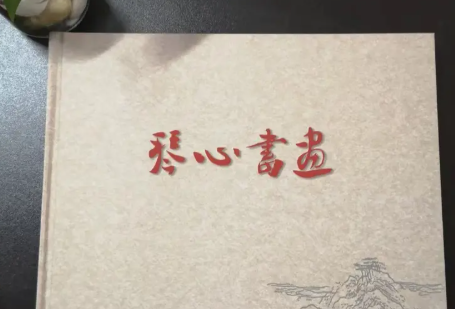 琴心書畫